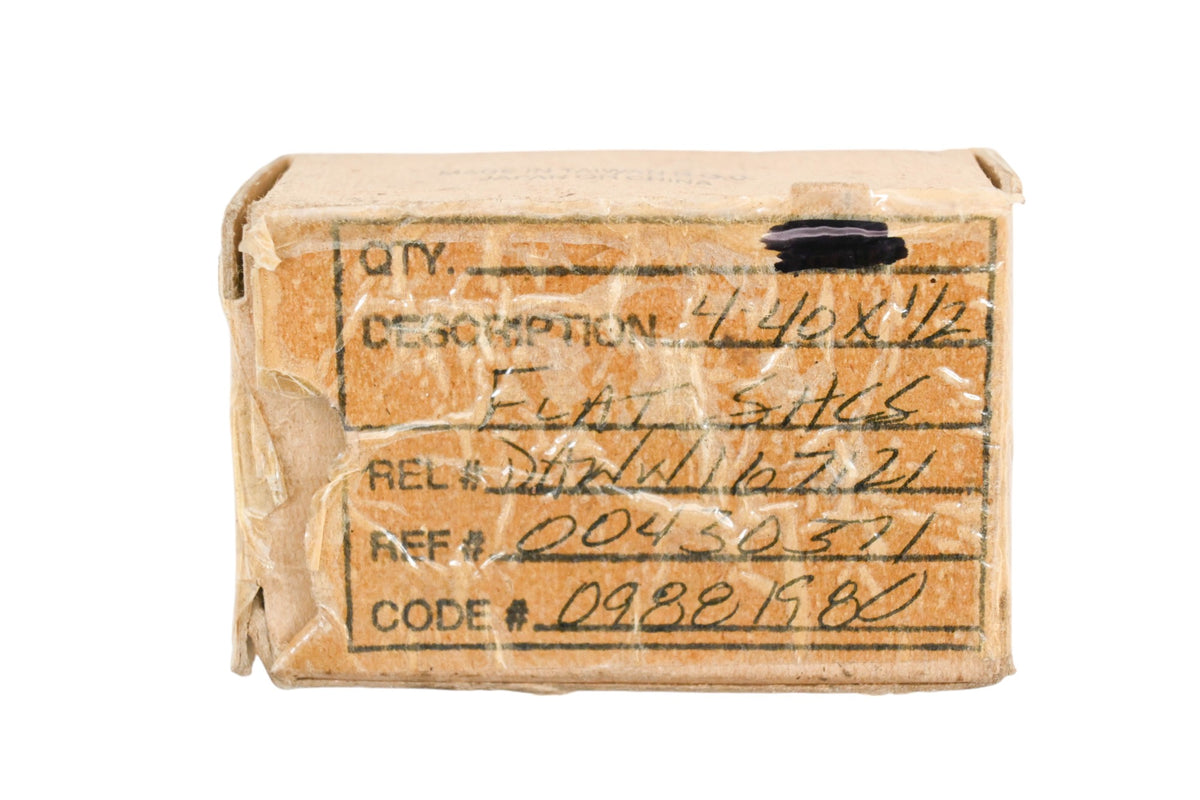 QTY.
DESCRIPTION 4-40 X 1/2
FLAT SHCS
REL # DAWW167121
REF # 00450371
CODE # 09881980